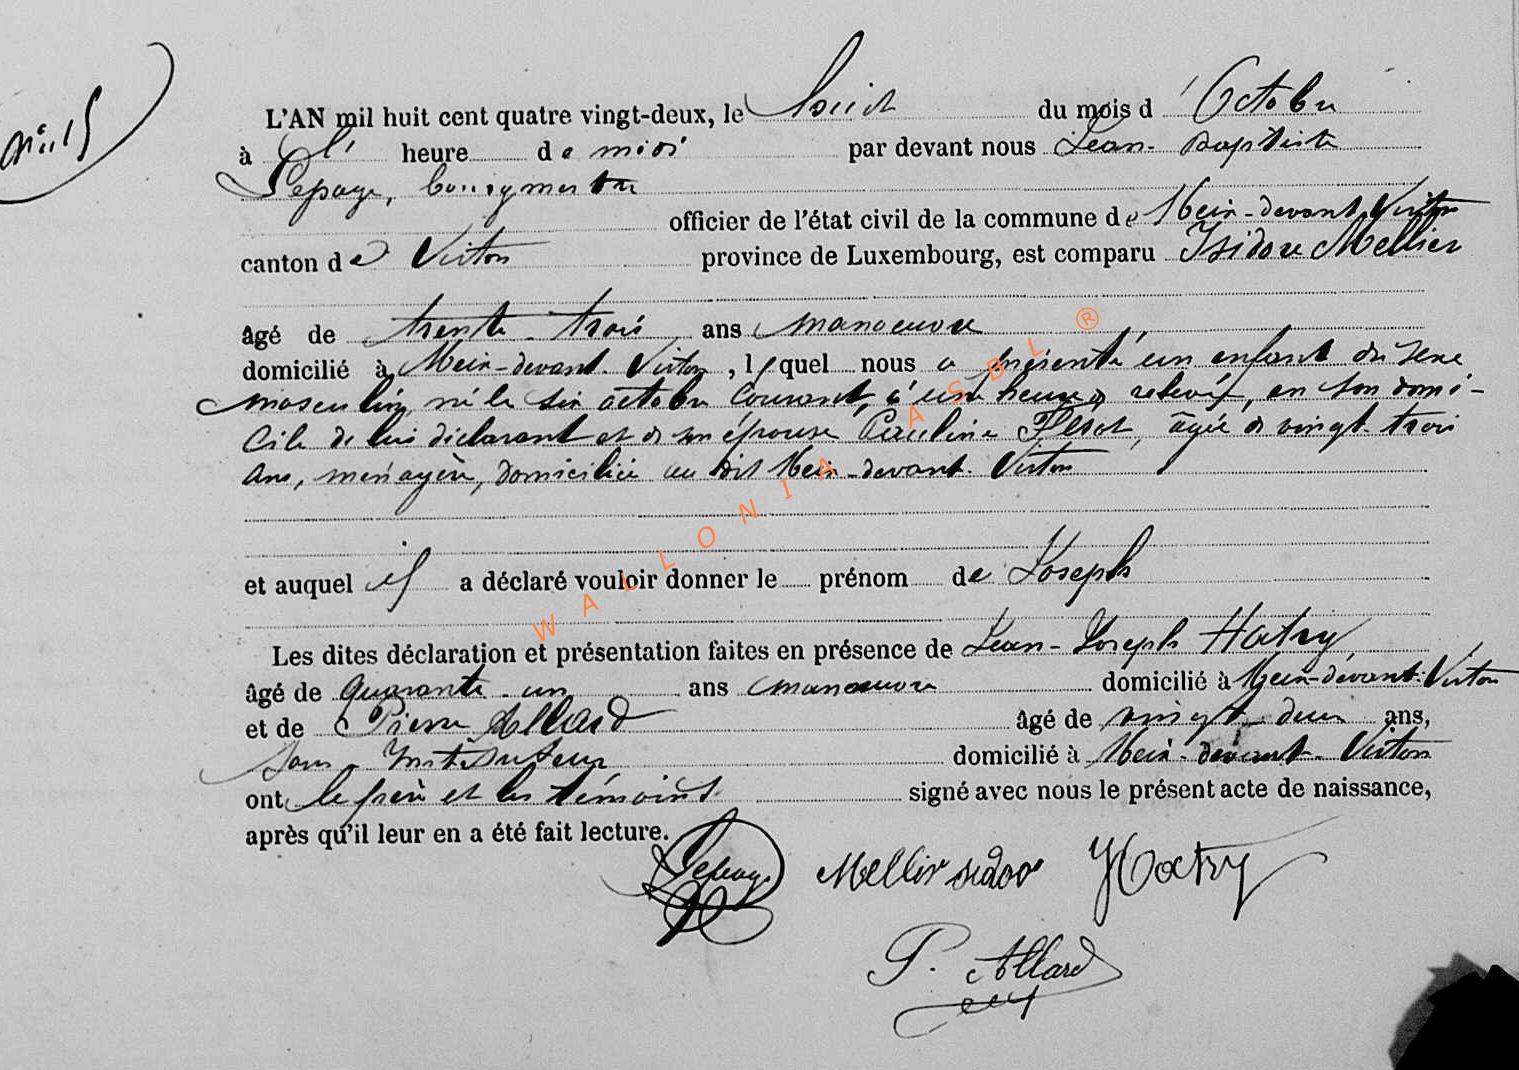 N° 15
L'AN mil huit cent quatre vingt-deux, le huit du mois d'Octobre
à l' heure de midi par devant nous Jean-Baptiste
Lepage, bourgmestre
officier de l'état civil de la commune de Meix-devant-Virton
canton de Virton province de Luxembourg, est comparu Isidore Mellier
âgé de trente-trois ans manoeuvre
domicilié à Meix-devant-Virton, lequel nous a présenté un enfant du sexe
masculin, né le six octobre courant, à une heure relevée, en son domi-
cile de lui déclarant et de son épouse Pauline, âgée de vingt-trois
ans, ménagère, domiciliée au dit Meix-devant-Virton
et auquel il a déclaré vouloir donner le prénom de Joseph
Les dites déclaration et présentation faites en présence de Jean-Joseph Hatry,
âgé de quarante-un ans manoeuvre domicilié à Meix-devant-Virton
et de Pierre Allard âgé de vingt-deux ans,
sous-Instituteur domicilié à Meix-devant-Virton
ont le père et les témoins signé avec nous le présent acte de naissance,
après qu'il leur en a été fait lecture.
Lepage Mellier Isidor JHatry
P. Allard
WALLONIA ASBL ®